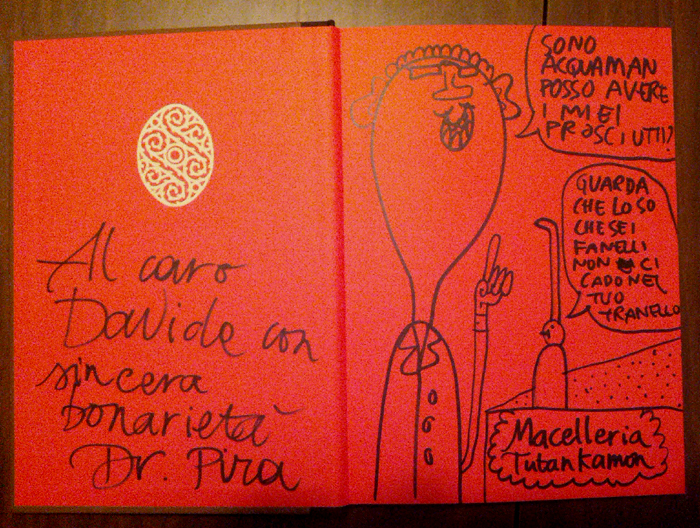 Al caro
Davide con
sincera
bonarietà
Dr. Pira
SONO
ACQUAMAN
POSSO AVERE
I MIEI
PROSCIUTTI?
GUARDA
CHE LO SO
CHE SEI
FANELLI
NON CI
CADO NEL
TUO
TRANELLO
Macelleria
Tutankamon